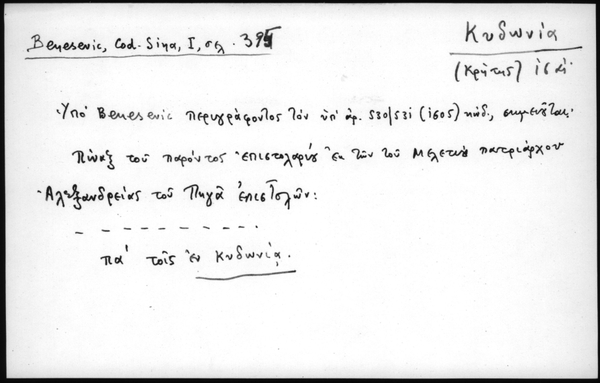 Benesevic, Cod. Sina, I, σελ. 395
Κυδωνία
(Κρήτης) ις αἰ.
Ὑπὸ Benesevic περιγράφοντος τὸν ὑπ' ἀρ. 530/531 (1505) κώδ., σημειοῦται:
Πίναξ τοῦ παρόντος ἐπιστολαρίου ἐκ τῶν τοῦ Μελετίου πατριάρχου
Ἀλεξανδρείας τοῦ Πηγᾶ ἐπιστολῶν:
- - - - - - - - -
πα' τοῖς ἐν Κυδωνίᾳ.